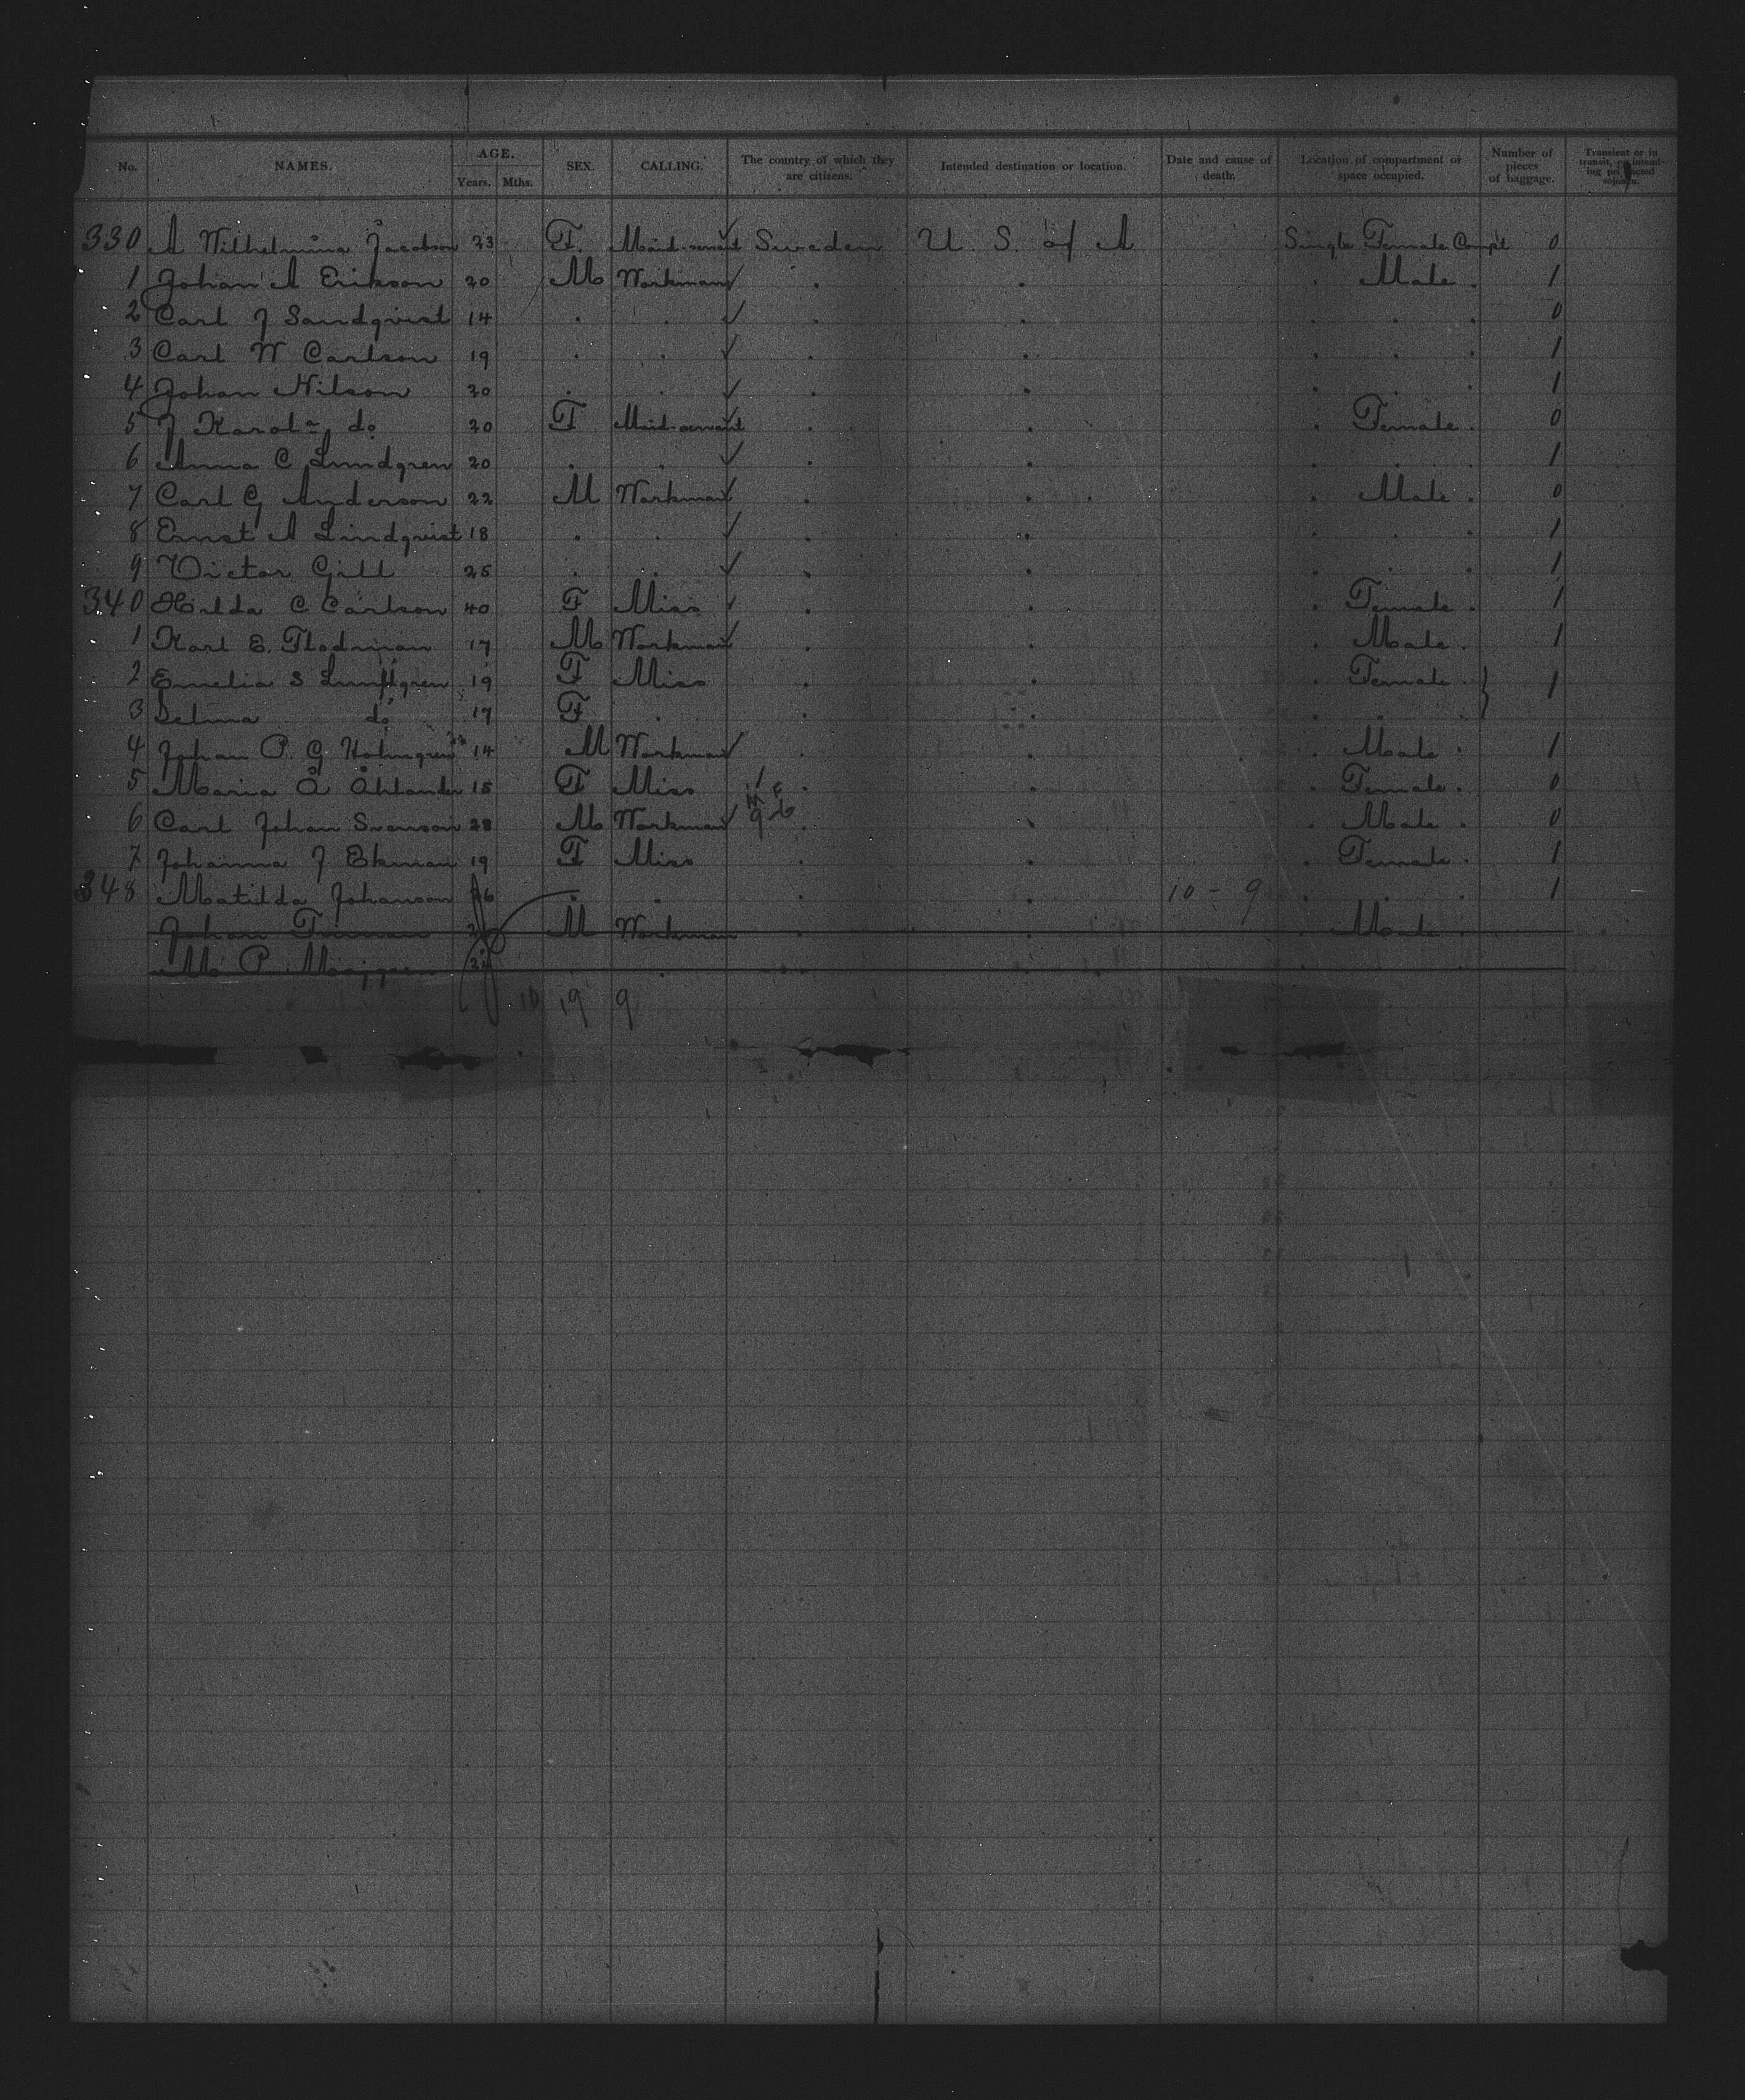 No. NAMES. AGE. Years. Mths. SEX. CALLING. The country of which they are citizens. Intended destination or location. Date and cause of death. Location of compartment or space occupied. Number of pieces of baggage. Transient or in transit, or intending protracted sojourn.
330 A Wilhelmina Jacobson 23 F. Maid-servant ✓ Sweden U. S. of A Single Female Compt 0
1 Johan A Erikson 20 M Workman ✓ . . . Male . 1
2 Carl J Sandqvist 14 . . ✓ . . . . . 0
3 Carl W Carlson 19 . . ✓ . . . . . 1
4 Johan Nilson 20 . . ✓ . . . . . 1
5 J Karola do 20 F Maid-servant ✓ . . . Female . 0
6 Anna C Lundgren 20 . . ✓ . . . . . 1
7 Carl G Anderson 22 M Workman ✓ . . . Male . 0
8 Ernst A Lindqvist 18 . . ✓ . . . . . 1
9 Victor Gill 25 . . ✓ . . . . . 1
340 Hilda C Carlson 40 F Miss ✓ . . . Female . 1
1 Karl E. Flodman 17 M Workman ✓ . . . Male . 1
2 Emelia S Lundgren 19 F Miss . . . Female . } 1
3 Selma do 17 F . . . . . .
4 Johan P. G Holmgren 14 M Workman ✓ . . . Male . 1
5 Maria Å Åhlander 15 F Miss . . . Female . 0
6 Carl Johan Svenson 28 M Workman ✓ . . . Male . 0
7 Johanna J Ekman 19 F Miss . . . Female . 1
348 Matilda Johanson 26 . . . . 10 - 9 . . . 1
Johan M Workman . . . Male .
M P
10 19 9